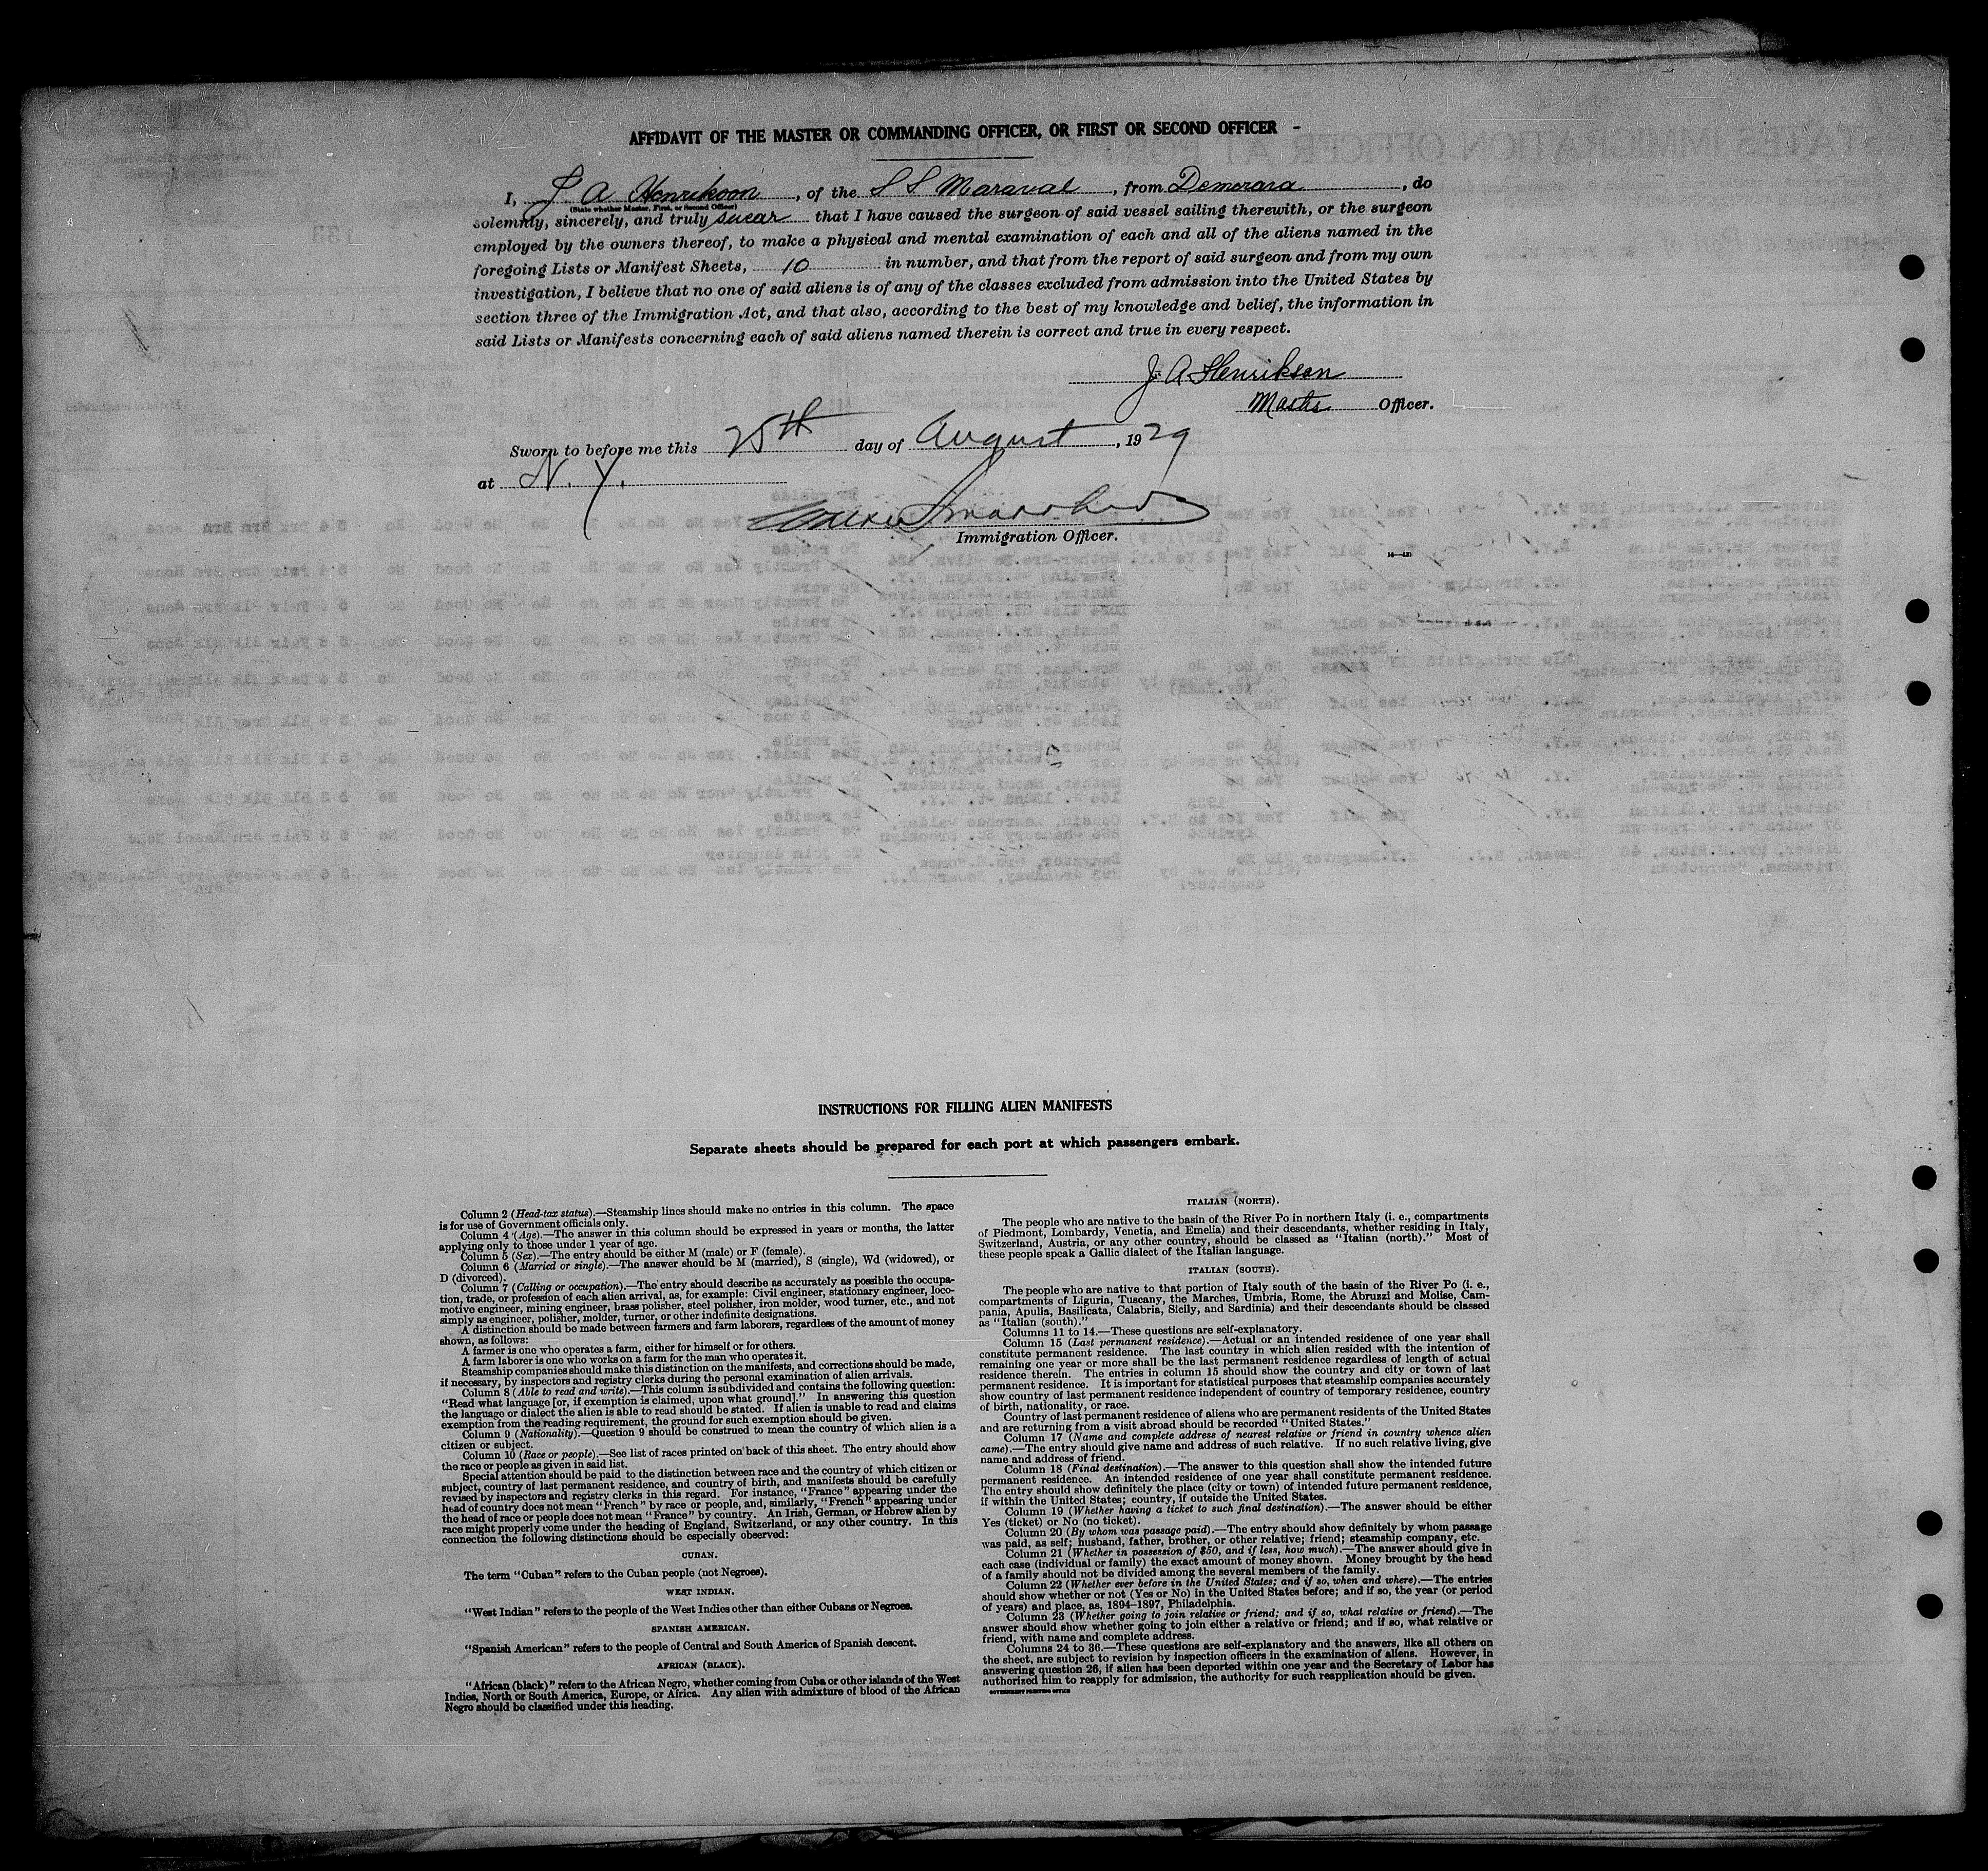 AFFIDAVIT OF THE MASTER OR COMMANDING OFFICER, OR FIRST OR SECOND OFFICER
I, J A Henrikson, of the S S Maraval, from Demerara, do
(State whether Master, First, or Second Officer)
solemnly, sincerely, and truly swear that I have caused the surgeon of said vessel sailing therewith, or the surgeon
employed by the owners thereof, to make a physical and mental examination of each and all of the aliens named in the
foregoing Lists or Manifest Sheets, 10 in number, and that from the report of said surgeon and from my own
investigation, I believe that no one of said aliens is of any of the classes excluded from admission into the United States by
section three of the Immigration Act, and that also, according to the best of my knowledge and belief, the information in
said Lists or Manifests concerning each of said aliens named therein is correct and true in every respect.
J. A. Henriksen
Master Officer.
Sworn to before me this 25th day of August, 1929
at N. Y.
Immigration Officer.
INSTRUCTIONS FOR FILLING ALIEN MANIFESTS
Separate sheets should be prepared for each port at which passengers embark.
Column 2 (Head-tax status).—Steamship lines should make no entries in this column. The space
is for use of Government officials only.
Column 4 (Age).—The answer in this column should be expressed in years or months, the latter
applying only to those under 1 year of age.
Column 5 (Sex).—The entry should be either M (male) or F (female).
Column 6 (Married or single).—The answer should be M (married), S (single), Wd (widowed), or
D (divorced).
Column 7 (Calling or occupation).—The entry should describe as accurately as possible the occupa-
tion, trade, or profession of each alien arrival, as, for example: Civil engineer, stationary engineer, loco-
motive engineer, mining engineer, brass polisher, steel polisher, iron molder, wood turner, etc., and not
simply as engineer, polisher, molder, turner, or other indefinite designations.
A distinction should be made between farmers and farm laborers, regardless of the amount of money
shown, as follows:
A farmer is one who operates a farm, either for himself or for others.
A farm laborer is one who works on a farm for the man who operates it.
Steamship companies should make this distinction on the manifests, and corrections should be made,
if necessary, by inspectors and registry clerks during the personal examination of alien arrivals.
Column 8 (Able to read and write).—This column is subdivided and contains the following question:
"Read what language [or, if exemption is claimed, upon what ground]." In answering this question
the language or dialect the alien is able to read should be stated. If alien is unable to read and claims
exemption from the reading requirement, the ground for such exemption should be given.
Column 9 (Nationality).—Question 9 should be construed to mean the country of which alien is a
citizen or subject.
Column 10 (Race or people).—See list of races printed on back of this sheet. The entry should show
the race or people as given in said list.
Special attention should be paid to the distinction between race and the country of which citizen or
subject, country of last permanent residence, and country of birth, and manifests should be carefully
revised by inspectors and registry clerks in this regard. For instance, "France" appearing under the
head of country does not mean "French" by race or people, and, similarly, "French" appearing under
the head of race or people does not mean "France" by country. An Irish, German, or Hebrew alien by
race might properly come under the heading of England, Switzerland, or any other country. In this
connection the following distinctions should be especially observed:
CUBAN.
The term "Cuban" refers to the Cuban people (not Negroes).
WEST INDIAN.
"West Indian" refers to the people of the West Indies other than either Cubans or Negroes.
SPANISH AMERICAN.
"Spanish American" refers to the people of Central and South America of Spanish descent.
AFRICAN (BLACK).
"African (black)" refers to the African Negro, whether coming from Cuba or other islands of the West
Indies, North or South America, Europe, or Africa. Any alien with admixture of blood of the African
Negro should be classified under this heading.
ITALIAN (NORTH).
The people who are native to the basin of the River Po in northern Italy (i. e., compartments
of Piedmont, Lombardy, Venetia, and Emelia) and their descendants, whether residing in Italy,
Switzerland, Austria, or any other country, should be classed as "Italian (north)." Most of
these people speak a Gallic dialect of the Italian language.
ITALIAN (SOUTH).
The people who are native to that portion of Italy south of the basin of the River Po (i. e.,
compartments of Liguria, Tuscany, the Marches, Umbria, Rome, the Abruzzi and Molise, Cam-
pania, Apulia, Basilicata, Calabria, Sicily, and Sardinia) and their descendants should be classed
as "Italian (south)."
Columns 11 to 14.—These questions are self-explanatory.
Column 15 (Last permanent residence).—Actual or an intended residence of one year shall
constitute permanent residence. The last country in which alien resided with the intention of
remaining one year or more shall be the last permanent residence regardless of length of actual
residence therein. The entries in column 15 should show the country and city or town of last
permanent residence. It is important for statistical purposes that steamship companies accurately
show country of last permanent residence independent of country of temporary residence, country
of birth, nationality, or race.
Country of last permanent residence of aliens who are permanent residents of the United States
and are returning from a visit abroad should be recorded "United States."
Column 17 (Name and complete address of nearest relative or friend in country whence alien
came).—The entry should give name and address of such relative. If no such relative living, give
name and address of friend.
Column 18 (Final destination).—The answer to this question shall show the intended future
permanent residence. An intended residence of one year shall constitute permanent residence.
The entry should show definitely the place (city or town) of intended future permanent residence,
if within the United States; country, if outside the United States.
Column 19 (Whether having a ticket to such final destination).—The answer should be either
Yes (ticket) or No (no ticket).
Column 20 (By whom was passage paid).—The entry should show definitely by whom passage
was paid, as self; husband, father, brother, or other relative; friend; steamship company, etc.
Column 21 (Whether in possession of $50, and if less, how much).—The answer should give in
each case (individual or family) the exact amount of money shown. Money brought by the head
of a family should not be divided among the several members of the family.
Column 22 (Whether ever before in the United States; and if so, when and where).—The entries
should show whether or not (Yes or No) in the United States before; and if so, the year (or period
of years) and place, as, 1894–1897, Philadelphia.
Column 23 (Whether going to join relative or friend; and if so, what relative or friend).—The
answer should show whether going to join either a relative or friend; and if so, what relative or
friend, with name and complete address.
Columns 24 to 36.—These questions are self-explanatory and the answers, like all others on
the sheet, are subject to revision by inspection officers in the examination of aliens. However, in
answering question 26, if alien has been deported within one year and the Secretary of Labor has
authorized him to reapply for admission, the authority for such reapplication should be given.
GOVERNMENT PRINTING OFFICE